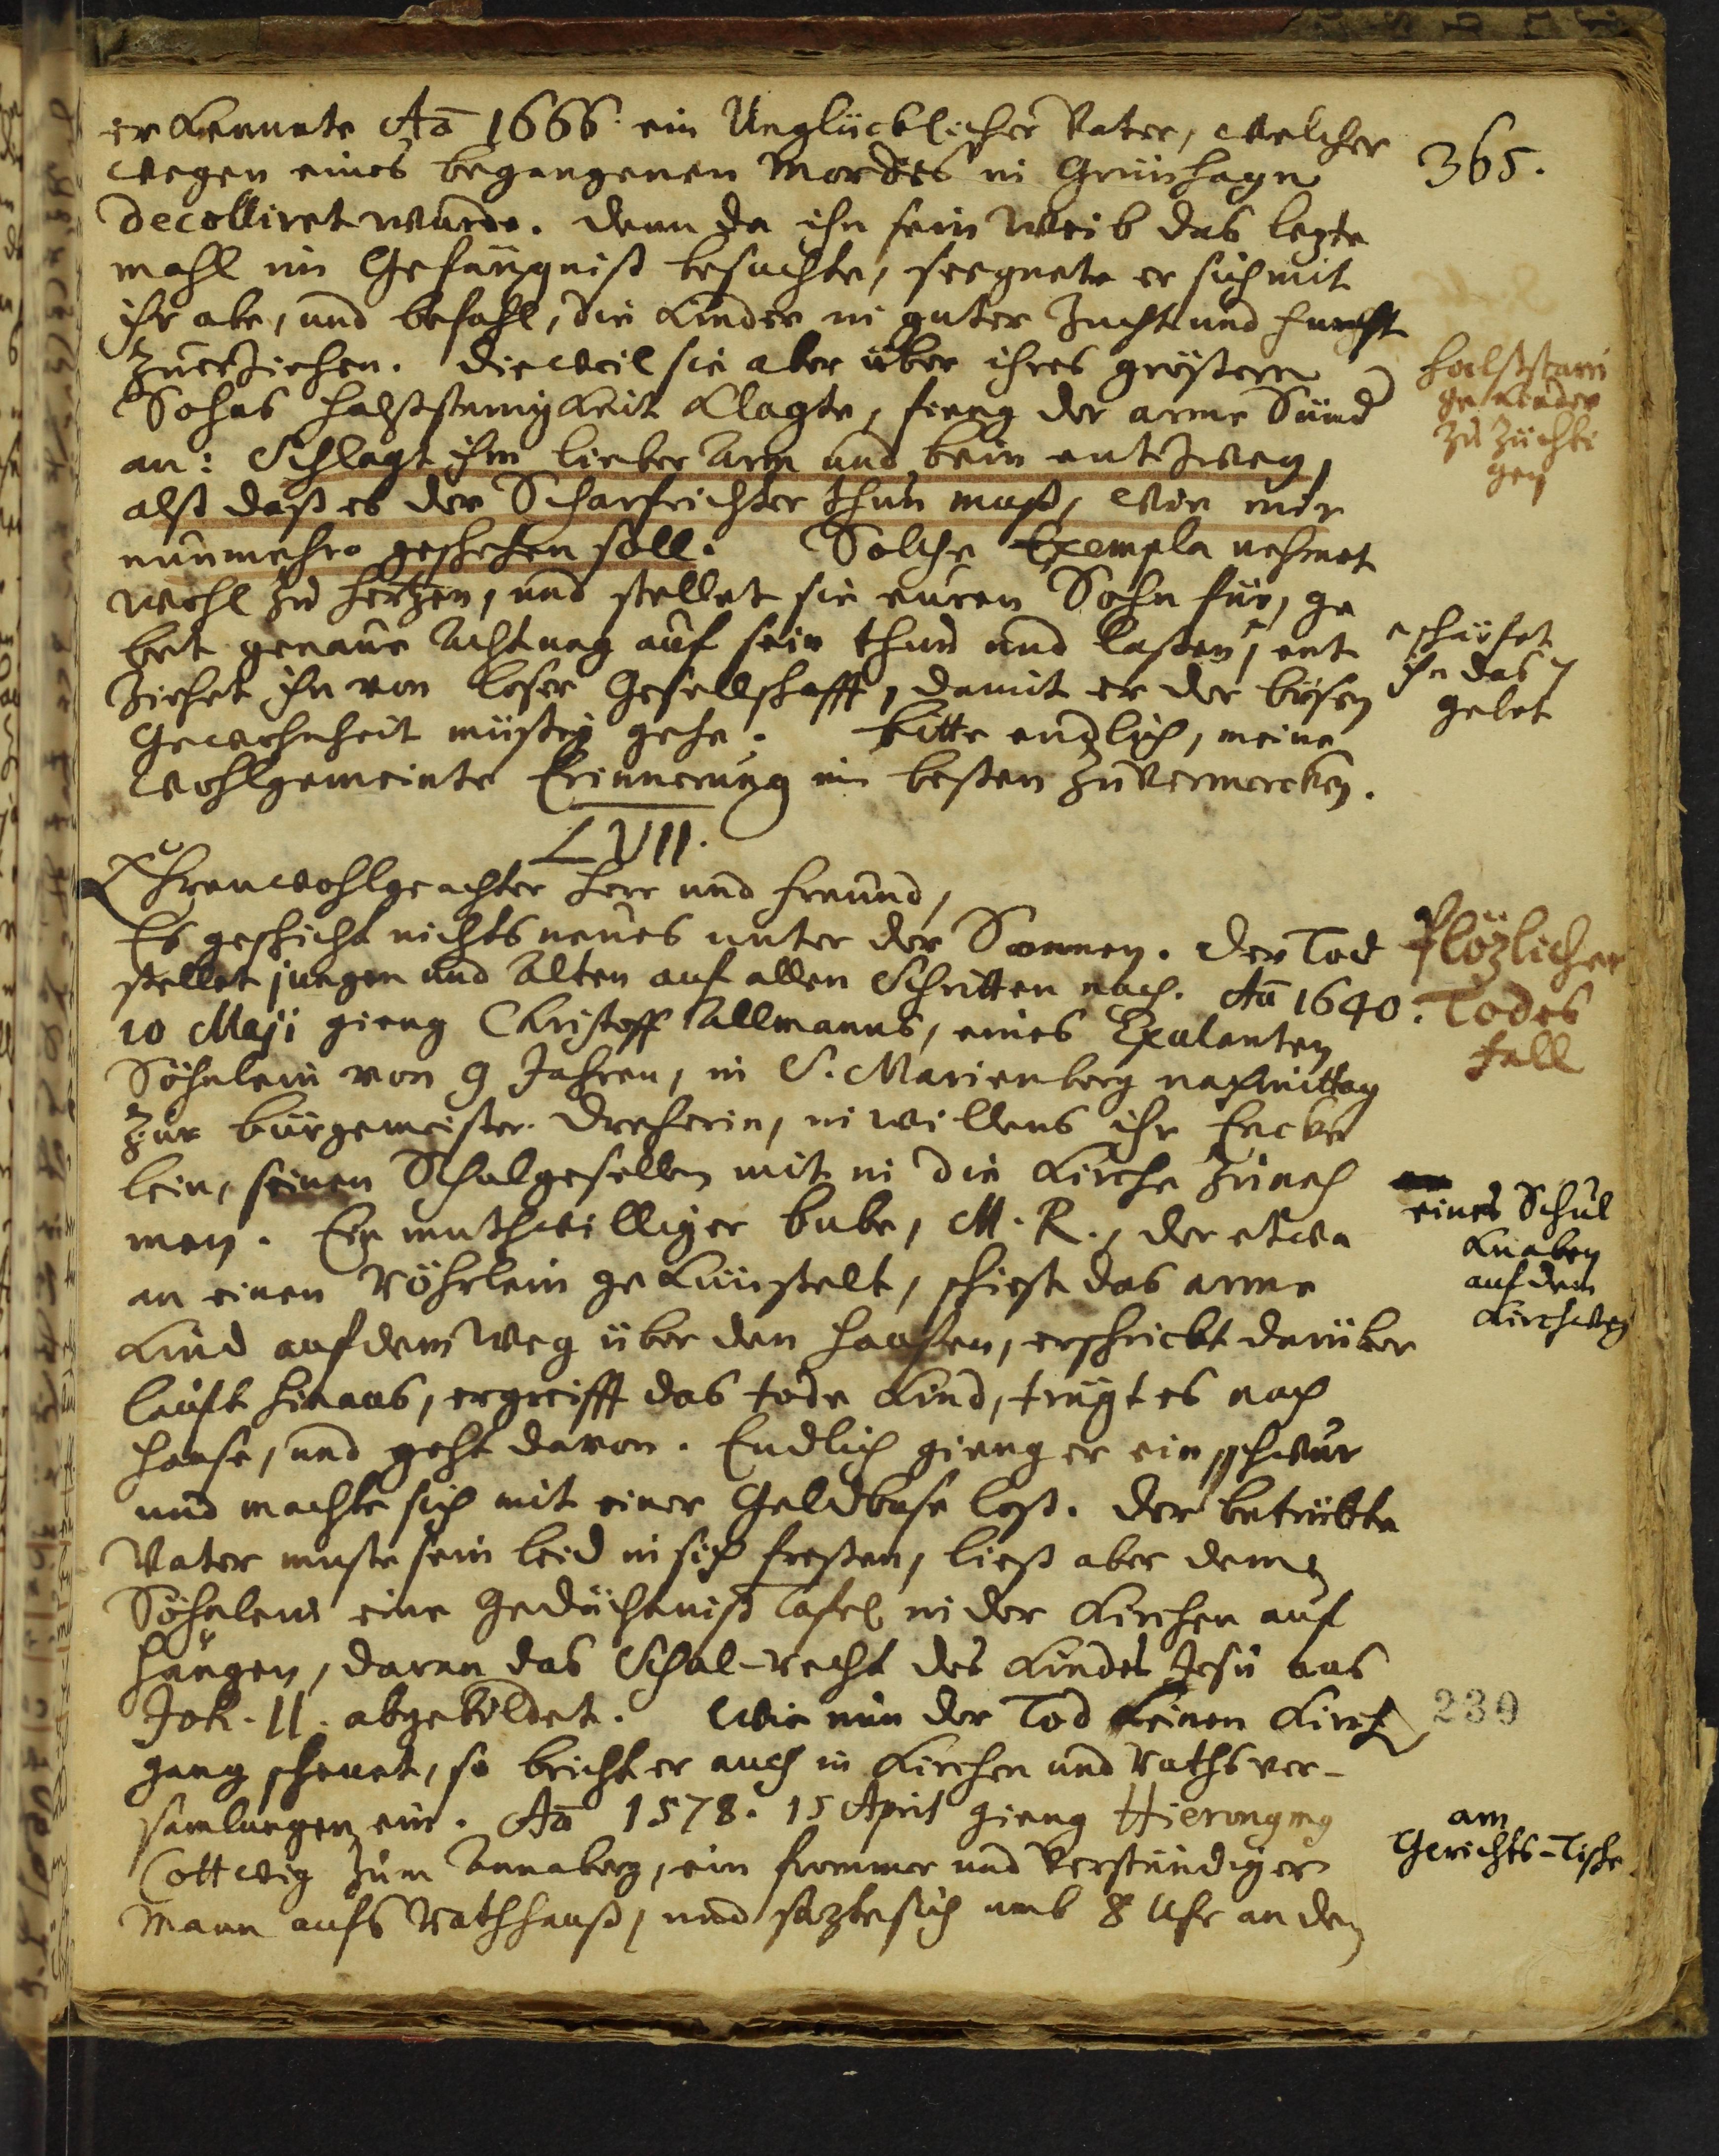 365.
erkennete Aō 1666. ein Unglücklicher Vater, welcher
wegen eines begangenen Mordes in Grünhayn
decolliret wurde. Denn da ihn sein Weib das lezte
mahl im Gefängniß besuchte, seegnete er sich mit
ihr abe, und befahl, die Kinder in guter Zucht und Furcht
zuerziehen. Dieweil sie aber über ihres grösten
Sohns halßstarrigkeit klagte, fieng der arme Sünder
an: Schlagt ihm lieber Arm und bein entzwey,
alß daß es der Scharfrichter thun muß, wie mir
nunmehro geschehen soll. Solche Exempla nehmet
wohl zu herzen, und stellet sie euren Sohn für, ge
bet genaue Achtung auf sein thun und laßen, ent
ziehet ihn von loser Gesellschafft, damit er der bösen
Gewohnheit müßig gehe. bitte endlich, meine
wohlgemeinte Erinnerung im besten zu vermercken.
halßstarri
ge Kinder
zu züchti
gen
schärfet
ihn das 7
gebot
LVII.
Ehrenwohlgeachter Herr und Freund,
Es geschicht nichts neues unter der Sonnen. Der Tod
stellet jungen und Alten auf allen Schritten nach. Aō 1640.
10 Maji gieng Christoff Allmanns, eines Exulanten
Söhnlein von 9 Jahren, in S. Marienberg nachmittag
zur bürgemeister Drecherin, in willens ihr Encke
lein, seinen Schulgesellen mit in die Kirche zuneh
men. Ein muthwilliger bube, M. R., der etwa
an einen Röhrlein gekünstelt, schiest das arme
Kind auf dem Weg über den hauffen, erschrickt darüber
läuft hinaus, ergreifft das tode Kind, trägt es nach
hause, und geht davon. Endlich gieng er ein schwur
und machte sich mit einer Geldbuse loß. Der betrübte
Vater muste sein leid in sich freßen, ließ aber dem
Söhnlein eine Gedächtniß Tafel in der Kirchen auf
hängen, daran das Schul-recht des Kindes Jesu aus
Joh. II. abgebildet. Wie nun der Tod keinen Kirch
gang scheuet, so bricht er auch in Kirchen und Raths ver-
samlungen ein. Aō 1578. 15 April gieng Hieronymg
Cottwig zum Annaberg, ein frommer und Verständiger
Mann aufs Rathhauß, und sazte sich umb 8 Uhr an den
Plözlicher
Todes
fall
eines Schul
Knaben
auf dem
Kirchweg
230
am
Gerichts-Tische